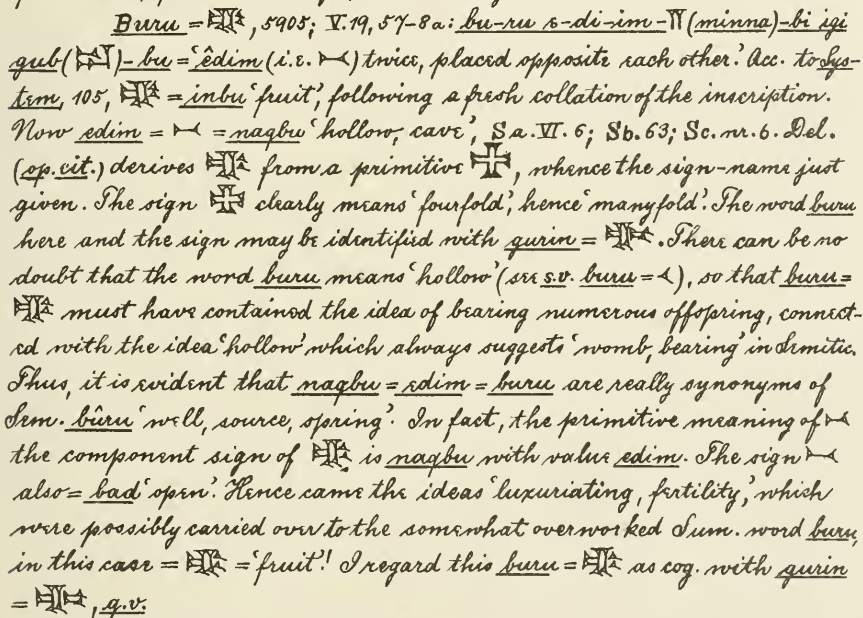 Buru = , 5905; V.19, 57-8a: bu-ru e-di-im-𒈫(minna)-bi igi
gub()-bu = ‘êdim (i.e. 𒁁) twice, placed opposite each other.’ Acc. to Sys-
tem, 105, = inbu ‘fruit’, following a fresh collation of the inscription.
Now edim = 𒁁 = naqbu ‘hollow, cave’, Sa. VI. 6; Sb. 63; Sc. nr. 6. Del.
(op. cit.) derives from a primitive , whence the sign-name just
given. The sign clearly means ‘fourfold’, hence ‘manyfold’. The word buru
here and the sign may be identified with gurin = . There can be no
doubt that the word buru means ‘hollow’ (see s.v. buru = 𒌋), so that buru =
must have contained the idea of bearing numerous offspring, connect-
ed with the idea ‘hollow’ which always suggests ‘womb, bearing’ in Semitic.
Thus, it is evident that naqbu = edim = buru are really synonyms of
Sem. bûru ‘well, source, spring’. In fact, the primitive meaning of 𒁁
the component sign of is naqbu with value edim. The sign 𒁁
also = bad ‘open’. Hence came the ideas ‘luxuriating, fertility’, which
were possibly carried over to the somewhat overworked Sum. word buru,
in this case = = ‘fruit’! I regard this buru = as cog. with gurin
= , q.v.